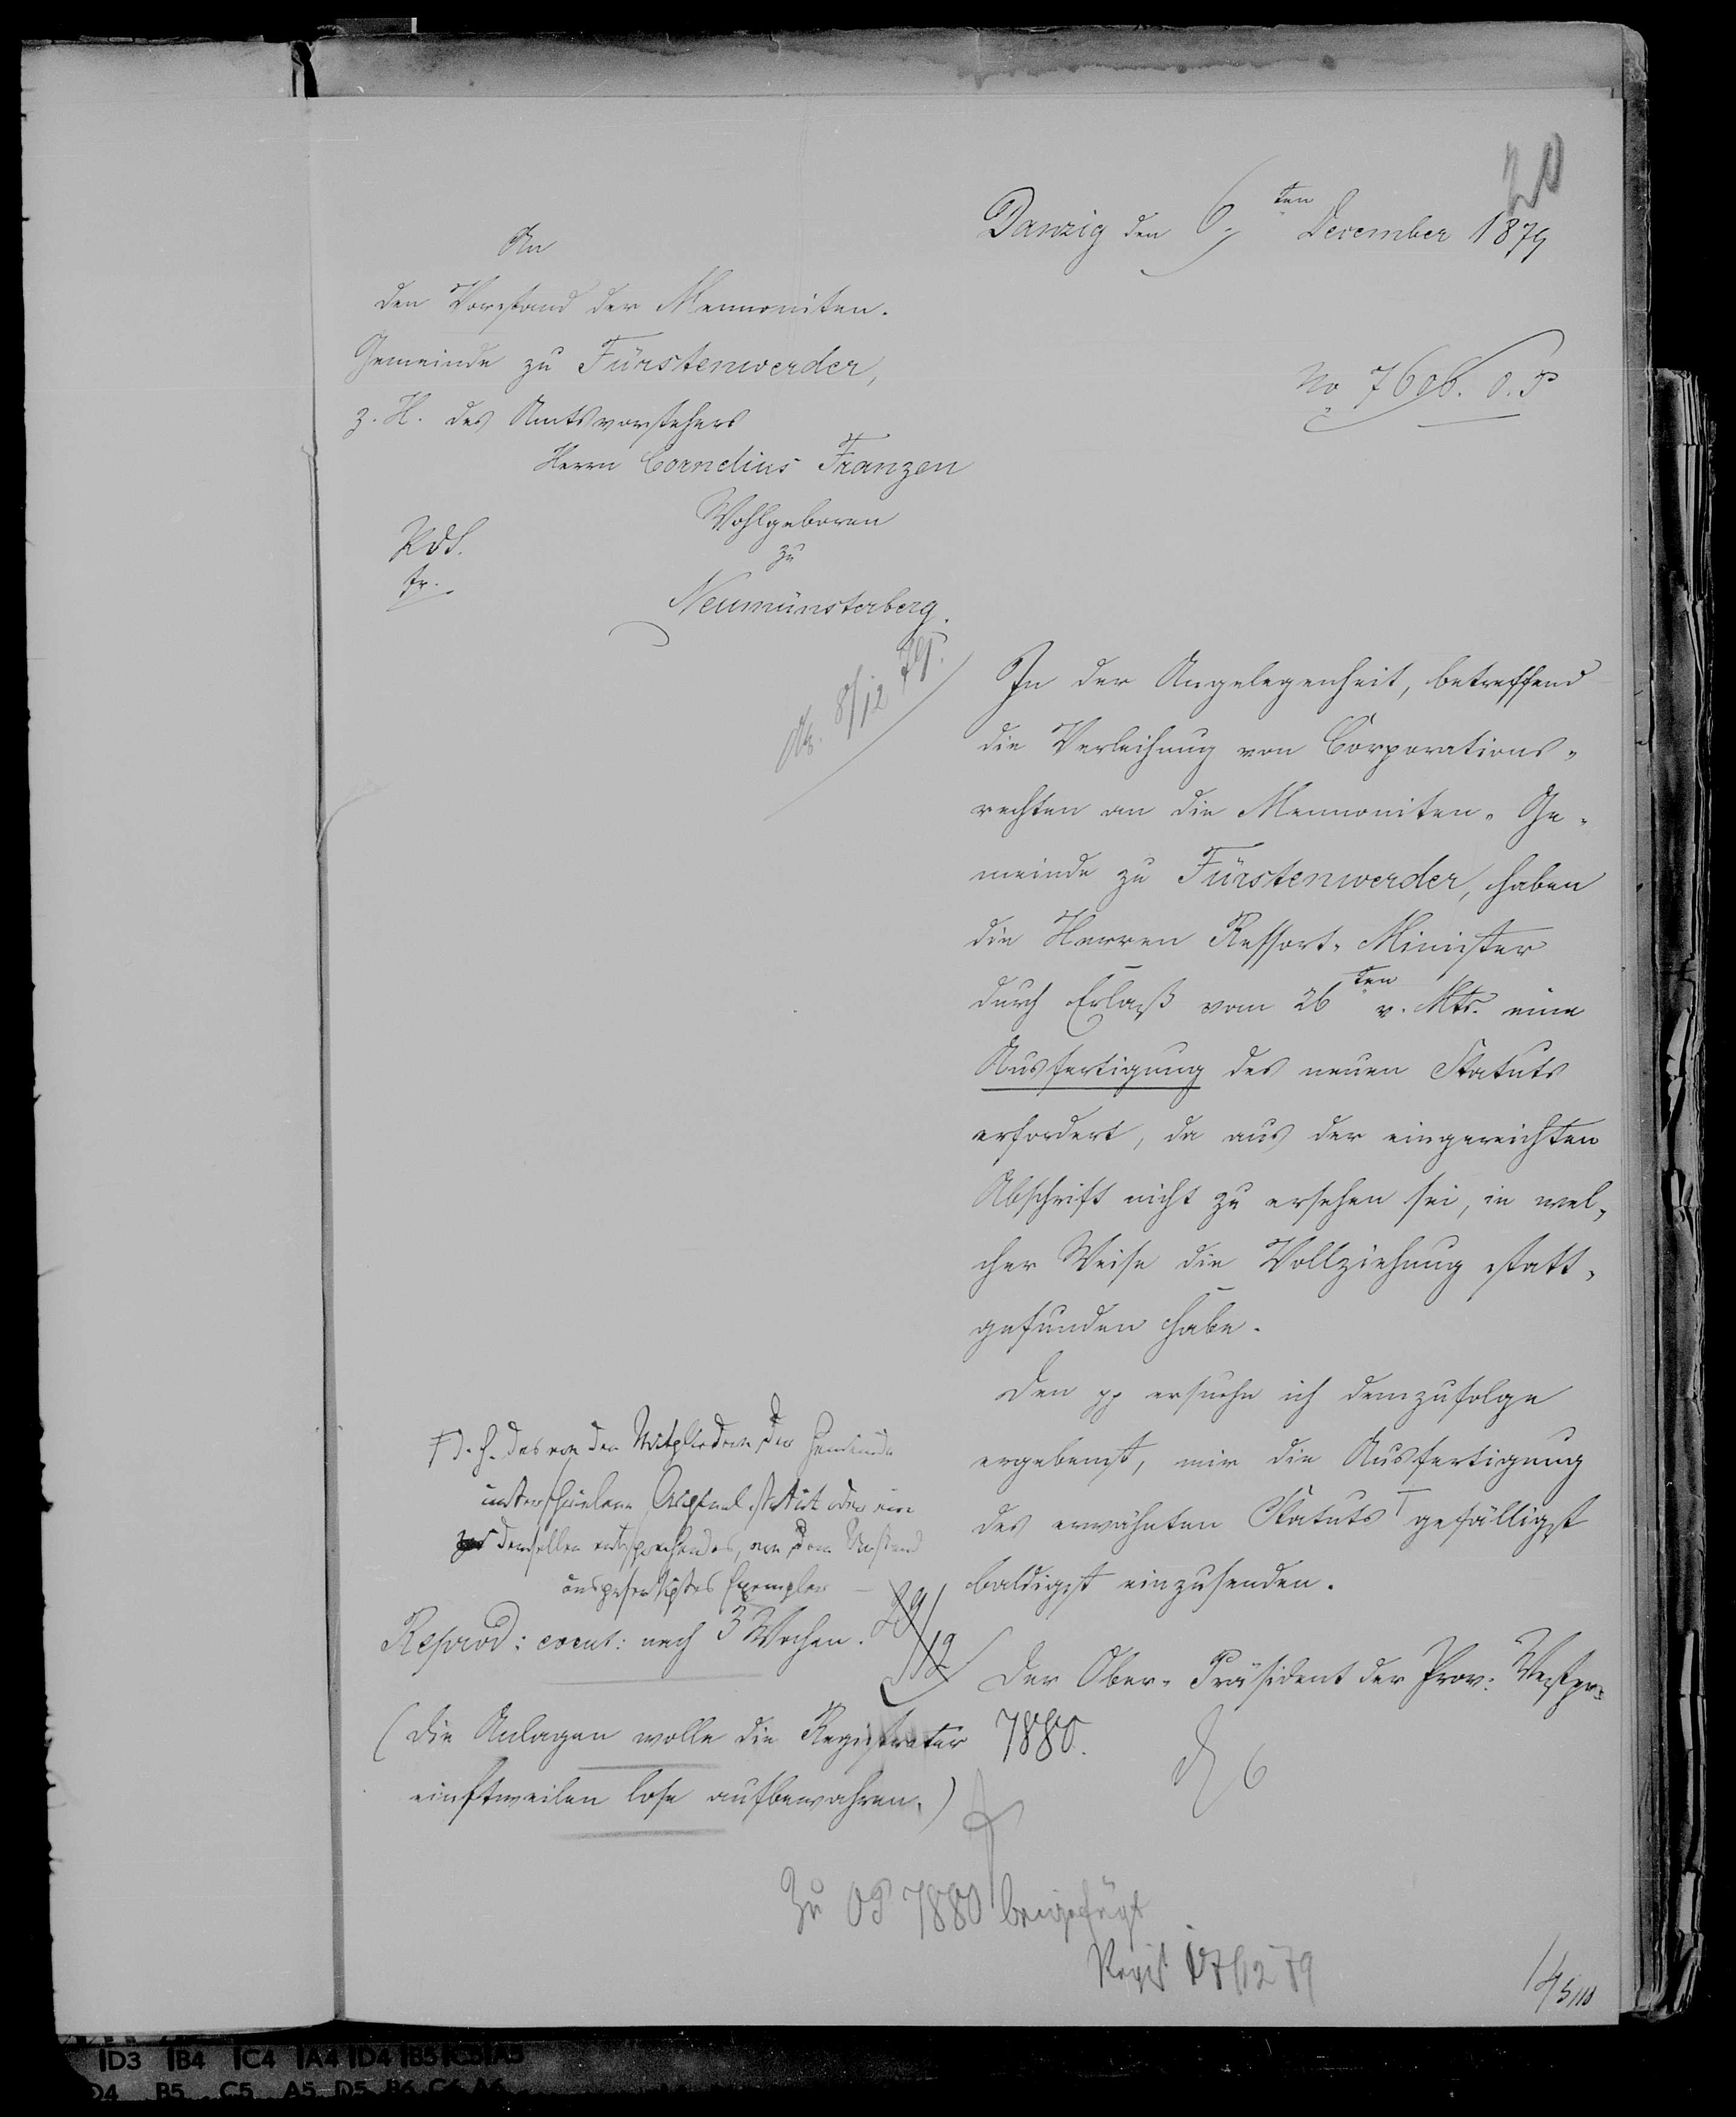 20
Danzig den 6ten December 1879
An
den Vorstand der Mennoniten-
Gemeinde zu Fürstenwerder,
z. H. des Amtsvorstehers
Herrn Cornelius Franzen
Wohlgeboren
zu
Neumünsterberg.
No 7606. O. P
8/12 79.
In der Angelegenheit, betreffend
die Verleihung von Corporations-
rechten an die Mennoniten-Ge-
meinde zu Fürstenwerder, haben
die Herren Ressort-Minister
durch Erlaß vom 26ten v. Mts. eine
Ausfertigung des neuen Statuts
erfordert, da aus der eingereichten
Abschrift nicht zu ersehen sei, in wel-
cher Weise die Vollziehung statt-
gefunden habe.
Den pp ersuche ich demzufolge
ergebenst, mir die Ausfertigung
des erwähnten Statuts gefälligst
baldigst einzusenden.
d. h. das von den Mitgliedern der Gemeinde
unterschriebene Original-Statut oder ein
demselben entsprechendes, von dem Vorstand
ausgefertigtes Exemplar
Reprod: event: nach 3 Wochen. 29/12
Der Ober-Präsident der Prov: Westpr:
(Die Anlagen wolle die Registratur
einstweilen lose aufbewahren.)
7880.
6
Zu OP 7880 beigefügt
17/12 79